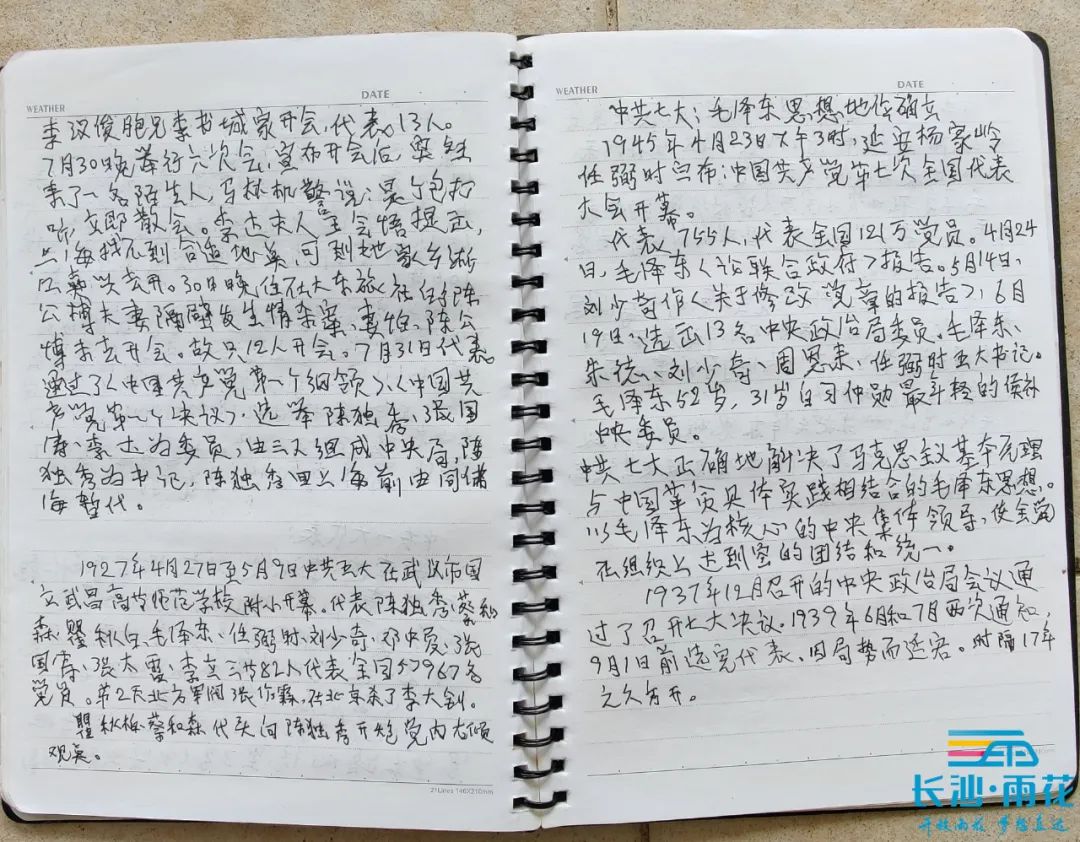 WEATHER
DATE
李汉俊胞兄李书城家开会,代表。13人。
7月30晚举行六次会,宣布开会后,突然
来了一名陌生人,马林机警说:是个包打
听,立即散会。李达夫人王会悟提出,
上海找不到合适地点,可到她家乡浙
江嘉兴去开。30日晚住在大东旅社的陈
公博夫妻隔壁发生情杀案,妻怕,陈公
博未去开会。故只12人开会。7月31日代表。
通过了《中国共产党第一个纲领》、《中国共
产党第一个决议》,选举陈独秀、张国
焘、李达为委员,由三人组成中央局,陈
独秀为书记,陈独秀回上海前由周佛
海暂代。
1927年4月27日至5月9日中共五大在武汉市国
立武昌高等师范学校附小开幕。代表陈独秀、蔡和
森、瞿秋白、毛泽东、任弼时、刘少奇、邓中夏、张
国焘、张太雷、李立三等82人代表全国57967名
党员。第2天北方军阀张作霖,在北京杀了李大钊。
瞿秋 、蔡和森代头向陈独秀开炮党内右倾
观点。
21Lines 146X210mm
WEATHER
DATE
中共七大:毛泽东思想地位确立
1945年4月23日下午3时,延安杨家岭
任弼时宣布:中国共产党第七次全国代表
大会开幕。
代表,755人,代表全国121万党员。4月24
日,毛泽东《论联合政府》报告。5月14日、
刘少奇作《关于修改党章的报告》,6月
19日:选出13名中央政治局委员。毛泽东、
朱德、刘少奇、周恩来、任弼时五大书记。
毛泽东52岁,31岁的习仲勋最年轻的候补
中央委员。
中共七大正确地解决了马克思主义基本元理
与中国革命具体实践相结合的毛泽东思想。
以毛泽东为核心的中央集体领导,使全党
在组织上达到空的团结和统一。
1937年12月召开的中央政治局会议通
过了召开七大决议。1939年6月和7月两次通知,
9月1日前选完代表、因局势而延宕。时隔17年
之久方开。
长沙·雨花
开放雨花 梦想直达